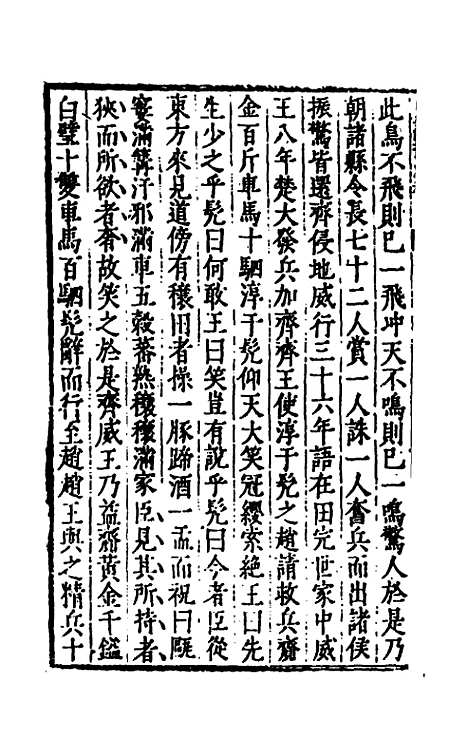 此鳥不飛則已一飛冲天不鳴則已一鳴驚人於是乃
朝諸縣令長七十二人賞一人誅一人奮兵而出諸侯
振驚皆還齊侵地威行三十六年語在田完世家中威
王八年楚大發兵加齊齊王使淳于髡之趙請救兵齎
金百斤車馬十駟淳于髡仰天大笑冠纓索絶王曰先
生少之乎髡曰何敢王曰笑豈有說乎髡曰今者臣從
東方來見道傍有穰田者操一豚蹄酒一盂而祝曰甌
窶滿篝汙邪滿車五穀蕃熟穰穰滿家臣見其所持者
狹而所欲者奢故笑之於是齊威王乃益齎黃金千鎰
白璧十雙車馬百駟髡辭而行至趙趙王與之精兵十